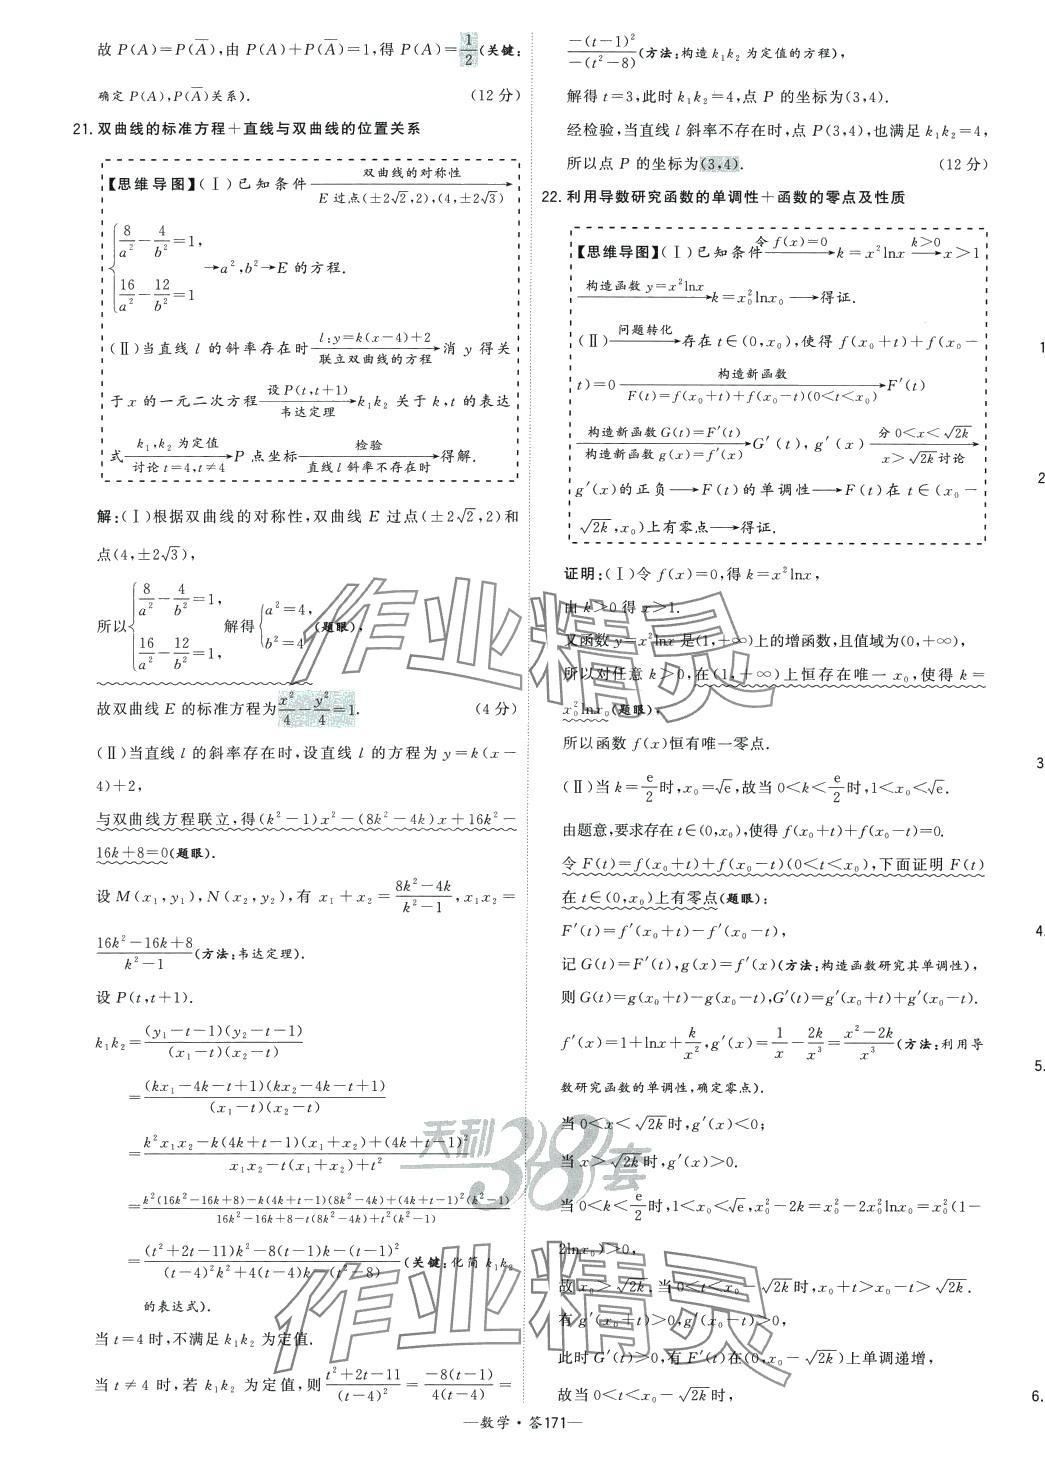 故 P(A)=P(A̅),由 P(A)+P(A̅)=1,得 P(A)=1/2(关键:
确定 P(A),P(A̅)关系). (12 分)
21. 双曲线的标准方程+直线与双曲线的位置关系
【思维导图】(Ⅰ)已知条件 双曲线的对称性→ E 过点(±2√2,2),(4,±2√3)
{8/a²-4/b²=1,
16/a²-12/b²=1 →a²,b²→E 的方程.
(Ⅱ)当直线 l 的斜率存在时 l:y=k(x-4)+2→ 联立双曲线的方程 消 y 得关
于 x 的一元二次方程 设 P(t,t+1)→ 韦达定理 k₁k₂ 关于 k,t 的表达
式 k₁,k₂ 为定值→ 讨论 t=4,t≠4 P 点坐标 检验→ 直线 l 斜率不存在时 得解.
解:(Ⅰ)根据双曲线的对称性,双曲线 E 过点(±2√2,2)和
点(4,±2√3),
所以{8/a²-4/b²=1, 16/a²-12/b²=1, 解得{a²=4, b²=4(题眼),
故双曲线 E 的标准方程为x²/4-y²/4=1. (4 分)
(Ⅱ)当直线 l 的斜率存在时,设直线 l 的方程为 y=k(x-
4)+2,
与双曲线方程联立,得(k²-1)x²-(8k²-4k)x+16k²-
16k+8=0(题眼).
设 M(x₁,y₁),N(x₂,y₂),有 x₁+x₂=(8k²-4k)/(k²-1),x₁x₂=
(16k²-16k+8)/(k²-1)(方法:韦达定理).
设 P(t,t+1).
k₁k₂=(y₁-t-1)(y₂-t-1)/(x₁-t)(x₂-t)
=(kx₁-4k-t+1)(kx₂-4k-t+1)/(x₁-t)(x₂-t)
=[k²x₁x₂-k(4k+t-1)(x₁+x₂)+(4k+t-1)²]/[x₁x₂-t(x₁+x₂)+t²]
=[k²(16k²-16k+8)-k(4k+t-1)(8k²-4k)+(4k+t-1)²(k²-1)]/[16k²-16k+8-t(8k²-4k)+t²(k²-1)]
=[(t²+2t-11)k²-8(t-1)k-(t-1)²]/[(t-4)²k²+4(t-4)k-(t²-8)](关键:化简 k₁k₂
的表达式).
当 t=4 时,不满足 k₁k₂ 为定值.
当 t≠4 时,若 k₁k₂ 为定值,则(t²+2t-11)/(t-4)²=-8(t-1)/4(t-4)=
-(t-1)²/-(t²-8)(方法:构造 k₁k₂ 为定值的方程),
解得 t=3,此时 k₁k₂=4,点 P 的坐标为(3,4).
经检验,当直线 l 斜率不存在时,点 P(3,4),也满足 k₁k₂=4,
所以点 P 的坐标为(3,4). (12 分)
22. 利用导数研究函数的单调性+函数的零点及性质
【思维导图】(Ⅰ)已知条件 令 f(x)=0→ k=x²lnx k>0→ x>1
构造函数 y=x²lnx→ k=x₀²lnx₀ →得证.
(Ⅱ) 问题转化→ 存在 t∈(0,x₀),使得 f(x₀+t)+f(x₀-
t)=0 构造新函数→ F(t)=f(x₀+t)+f(x₀-t)(0<t<x₀) F′(t)
构造新函数 G(t)=F′(t)→ 构造新函数 g(x)=f′(x) G′(t),g′(x) 分 0<x<√2k→ x>√2k讨论
g′(x)的正负→F(t)的单调性→F(t)在 t∈(x₀-
√2k,x₀)上有零点→得证.
证明:(Ⅰ)令 f(x)=0,得 k=x²lnx,
由 k>0 得 x>1.
又函数 y=x²lnx 是(1,+∞)上的增函数,且值域为(0,+∞),
所以对任意 k>0,在(1,+∞)上恒存在唯一 x₀,使得 k=
x₀²lnx₀(题眼),
所以函数 f(x)恒有唯一零点.
(Ⅱ)当 k=e/2时,x₀=√e,故当 0<k<e/2时,1<x₀<√e.
由题意,要求存在 t∈(0,x₀),使得 f(x₀+t)+f(x₀-t)=0.
令 F(t)=f(x₀+t)+f(x₀-t)(0<t<x₀),下面证明 F(t)
在 t∈(0,x₀)上有零点(题眼):
F′(t)=f′(x₀+t)-f′(x₀-t),
记 G(t)=F′(t),g(x)=f′(x)(方法:构造函数研究其单调性),
则 G(t)=g(x₀+t)-g(x₀-t),G′(t)=g′(x₀+t)+g′(x₀-t).
f′(x)=1+lnx+k/x²,g′(x)=1/x-2k/x³=(x²-2k)/x³(方法:利用导
数研究函数的单调性,确定零点).
当 0<x<√2k时,g′(x)<0;
当 x>√2k时,g′(x)>0.
当 0<k<e/2时,1<x₀<√e,x₀²-2k=x₀²-2x₀²lnx₀=x₀²(1-
2lnx₀)>0,
故 x₀>√2k.当 0<t<x₀-√2k时,x₀+t>x₀-t>√2k.
有 g′(x₀+t)>0,g′(x₀-t)>0,
此时 G′(t)>0,有 F′(t)在(0,x₀-√2k)上单调递增,
故当 0<t<x₀-√2k时,
1
2
3
4.
5.
6.
作业精灵
天利38套
作业精灵
—数学·答171—